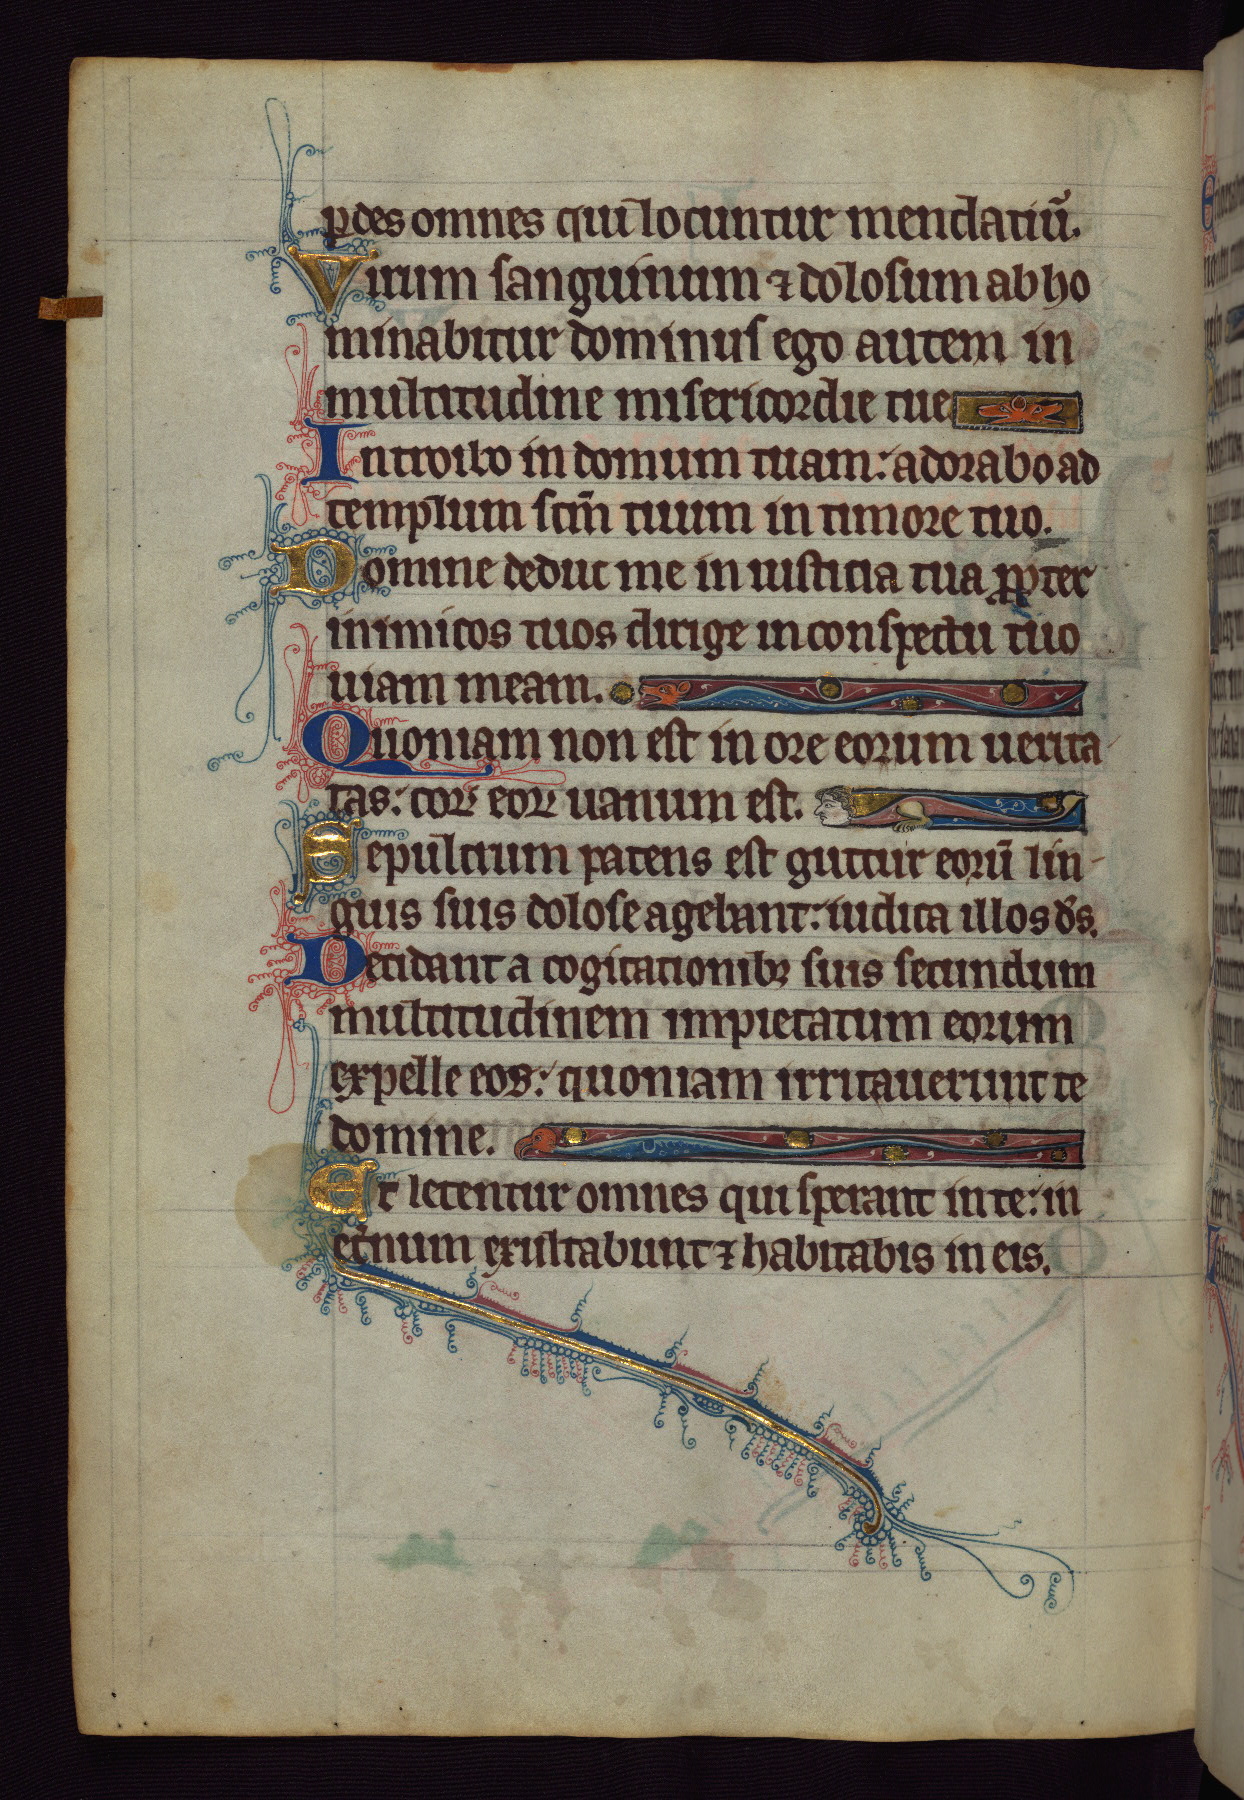 pdes omnes qui locuntur mendatiū.
Virum sanguinum ⁊ dolosum abho
minabitur dominus ego autem in
multitudine misericordie tue
Introibo in domum tuam: adorabo ad
templum scm̄ tuum in timore tuo.
Domine deduc me in iusticia tua ꝓpter
inimicos tuos dirige in conspectu tuo
uiam meam.
Quoniam non est in ore eorum uerita
tas: cor eoꝝ uanum est.
Sepulcrum patens est guttur eorū lin-
guis suis dolose agebant: iudica illos ds̄.
Decidant a cogitationibꝫ suis secundum
multitudinem impietatum eorum
expelle eos: quoniam irritauerunt te
domine.
Et letentur omnes qui sperant in te: in
et̾num exultabunt ⁊ habitabis in eis.